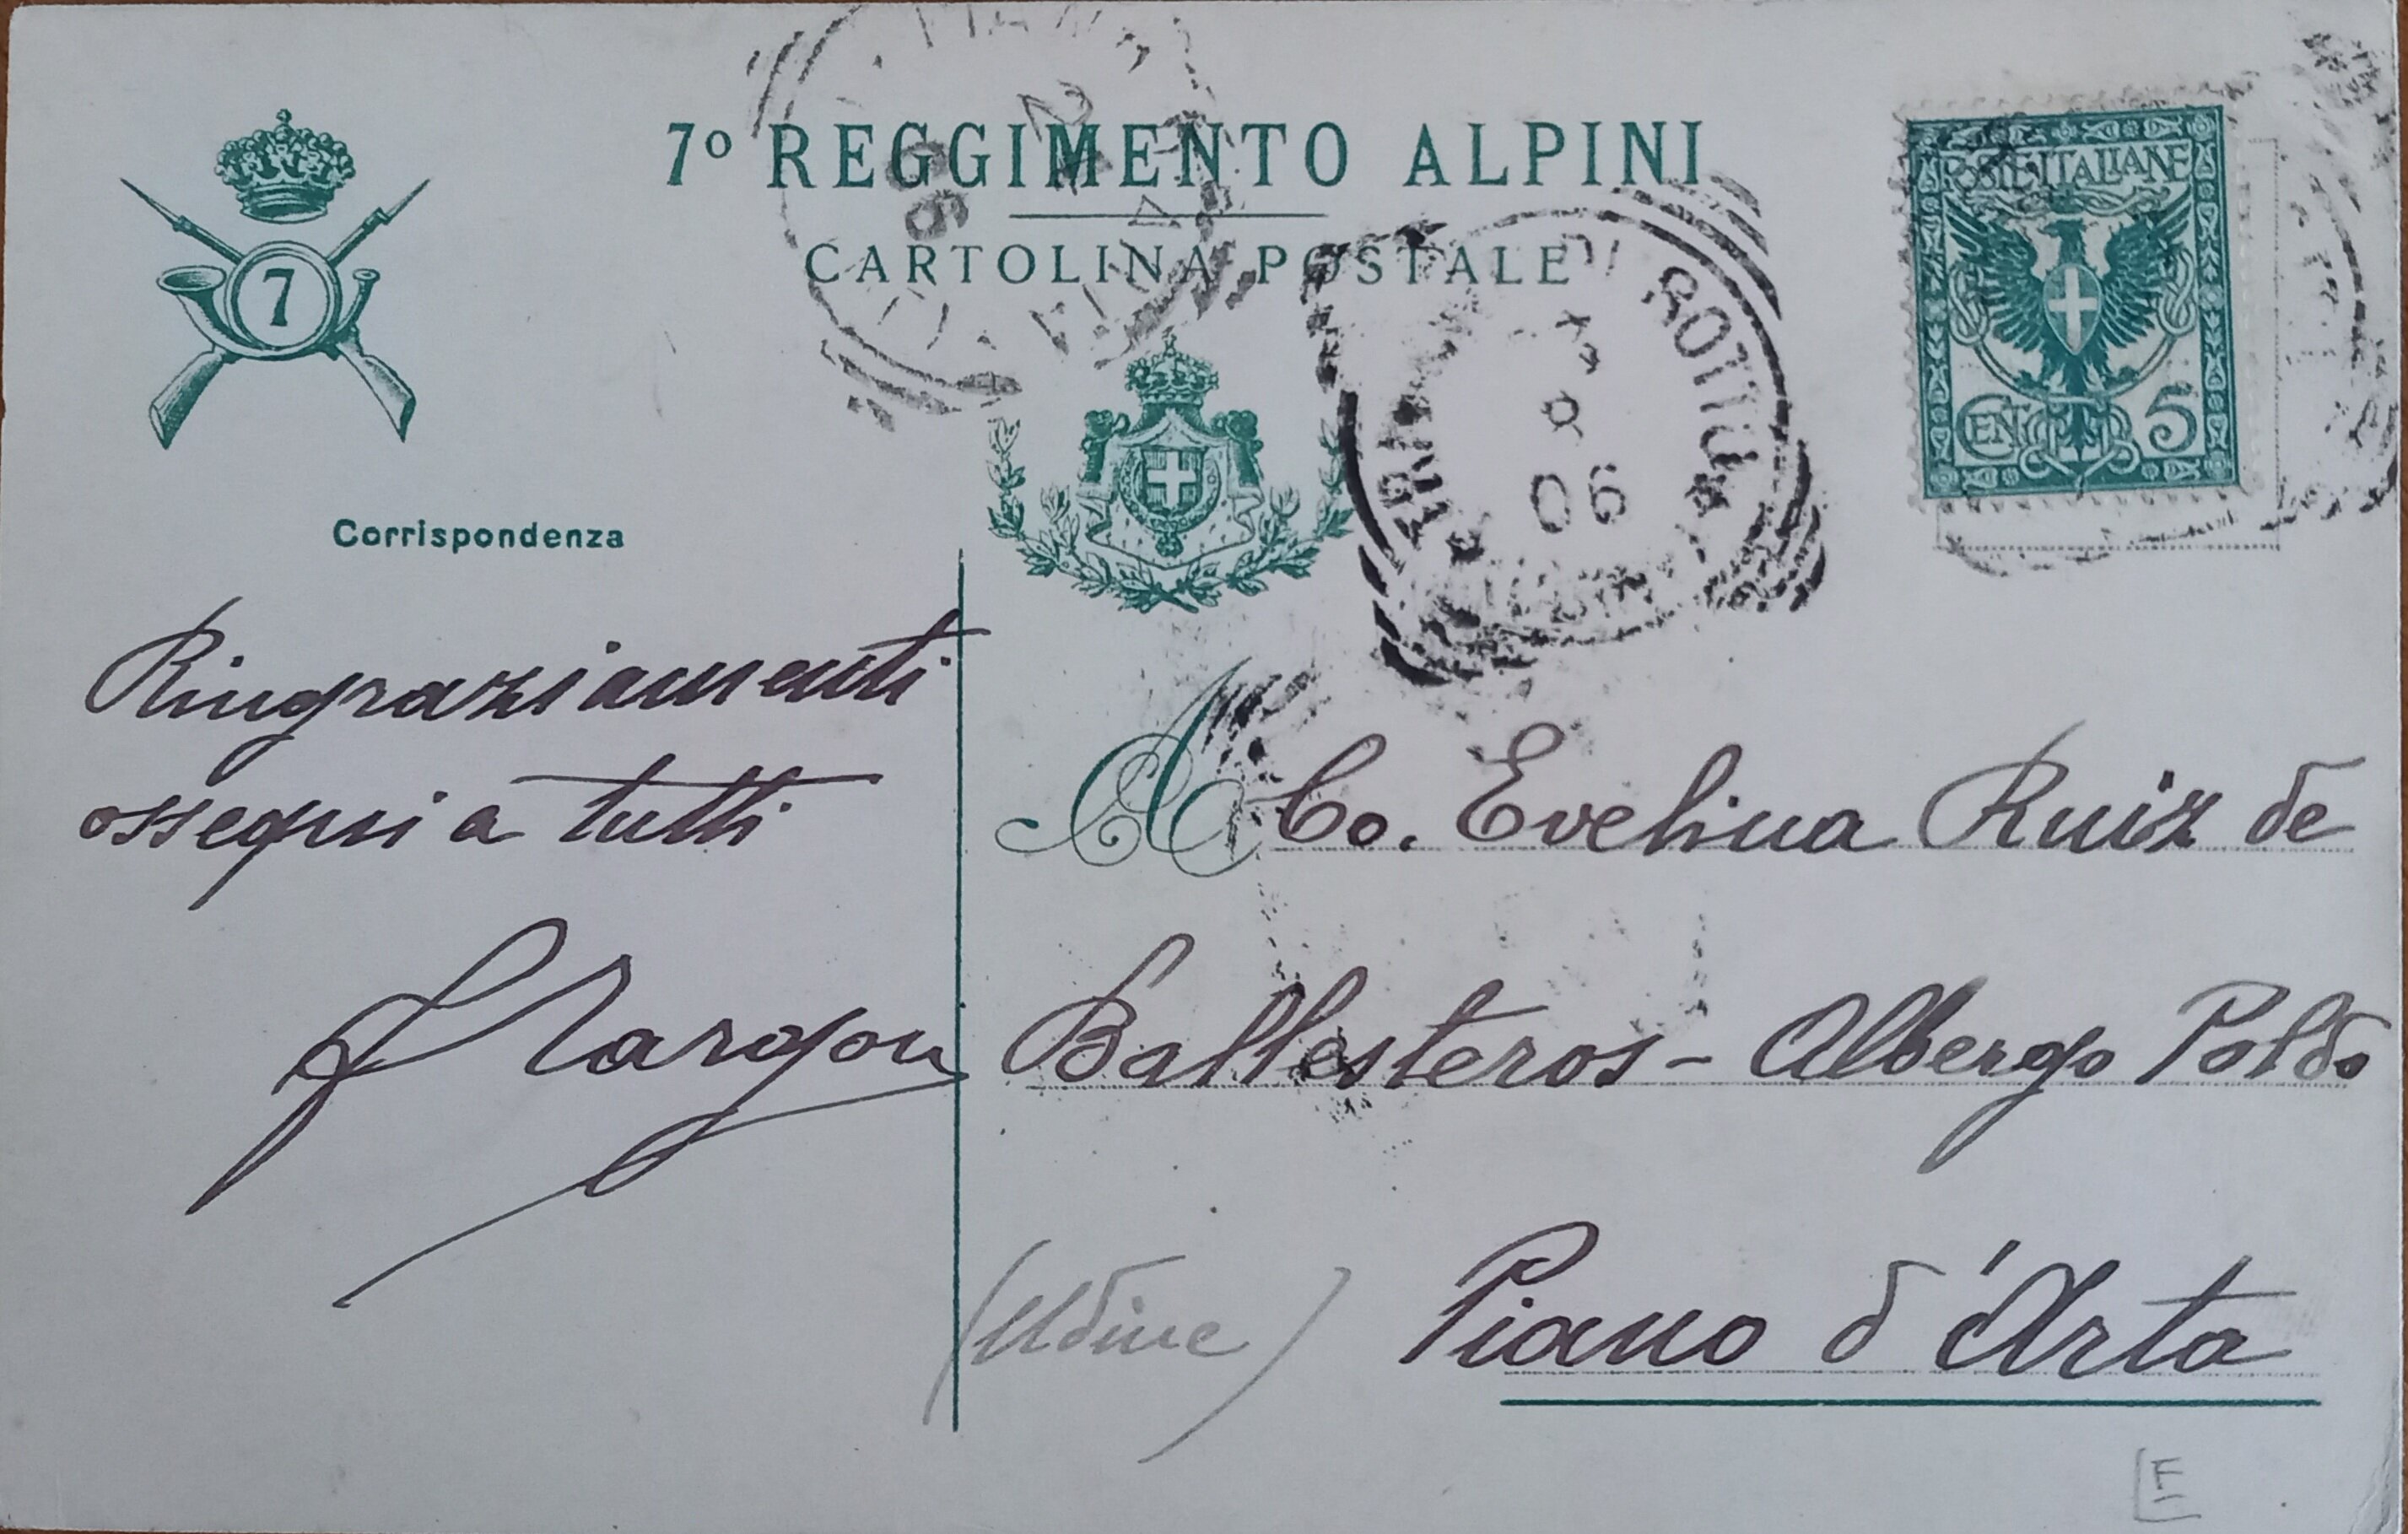 7º REGGIMENTO ALPINI
CARTOLINA POSTALE
7
POSTE ITALIANE
CENT 5
06
Corrispondenza
Ringraziamenti
ossequi a tutti
A Co. Evelina Ruiz de
Ballesteros - Albergo Poldo
(Udine) Piano d'Arta
E